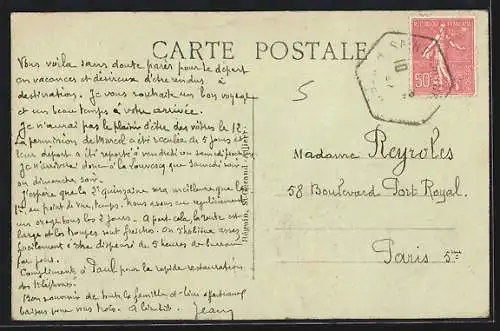 CARTE POSTALE
Vous voilà sans doute parés pour le départ
en vacances et désireux d'être rendus à
destination. Je vous souhaite un bon voyage
et un beau temps à votre arrivée.
Je n'aurai pas le plaisir d'être des vôtres le 12.
La permission de Marcel a été reculée de 5 jours et
leur départ a été reporté à vendredi ou samedi
Je n'arriverai donc à la Louvesc que samedi soir
ou dimanche soir.
J'espère que la 2e quinzaine sera meilleure que la
1e au point de vue temps. Nous avons eu régulièrement
un orage tous les 2 jours. A part cela la route est
large et les troupes sont fraîches. On s'habitue assez
facilement à être dispensé de 5 heures de bureau
par jour.
Compliments à Paul pour la rapide restauration
des
Bon souvenir de toute la famille et
baisers pour vos A bientôt. Jean
5
Madame Reyroles
58 Boulevard Port Royal.
Paris 5me
RÉPUBLIQUE FRANÇAISE
50c